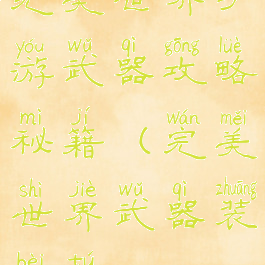 世界
yóu wǔ qì gōng lüè
游武器攻略
mì jí wán měi
秘籍(完美
shì jiè wǔ qì zhuāng
世界武器装
bèi